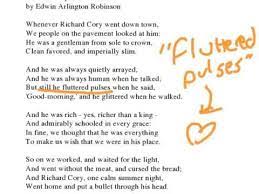 by Edwin Arlington Robinson
Whenever Richard Cory went down town,
We people on the pavement looked at him:
He was a gentleman from sole to crown,
Clean favored, and imperially slim.
And he was always quietly arrayed,
And he was always human when he talked;
But still he fluttered pulses when he said,
'Good-morning,' and he glittered when he walked.
And he was rich - yes, richer than a king -
And admirably schooled in every grace:
In fine, we thought that he was everything
To make us wish that we were in his place.
So on we worked, and waited for the light,
And went without the meat, and cursed the bread;
And Richard Cory, one calm summer night,
Went home and put a bullet through his head.
"fluttered
pulses"